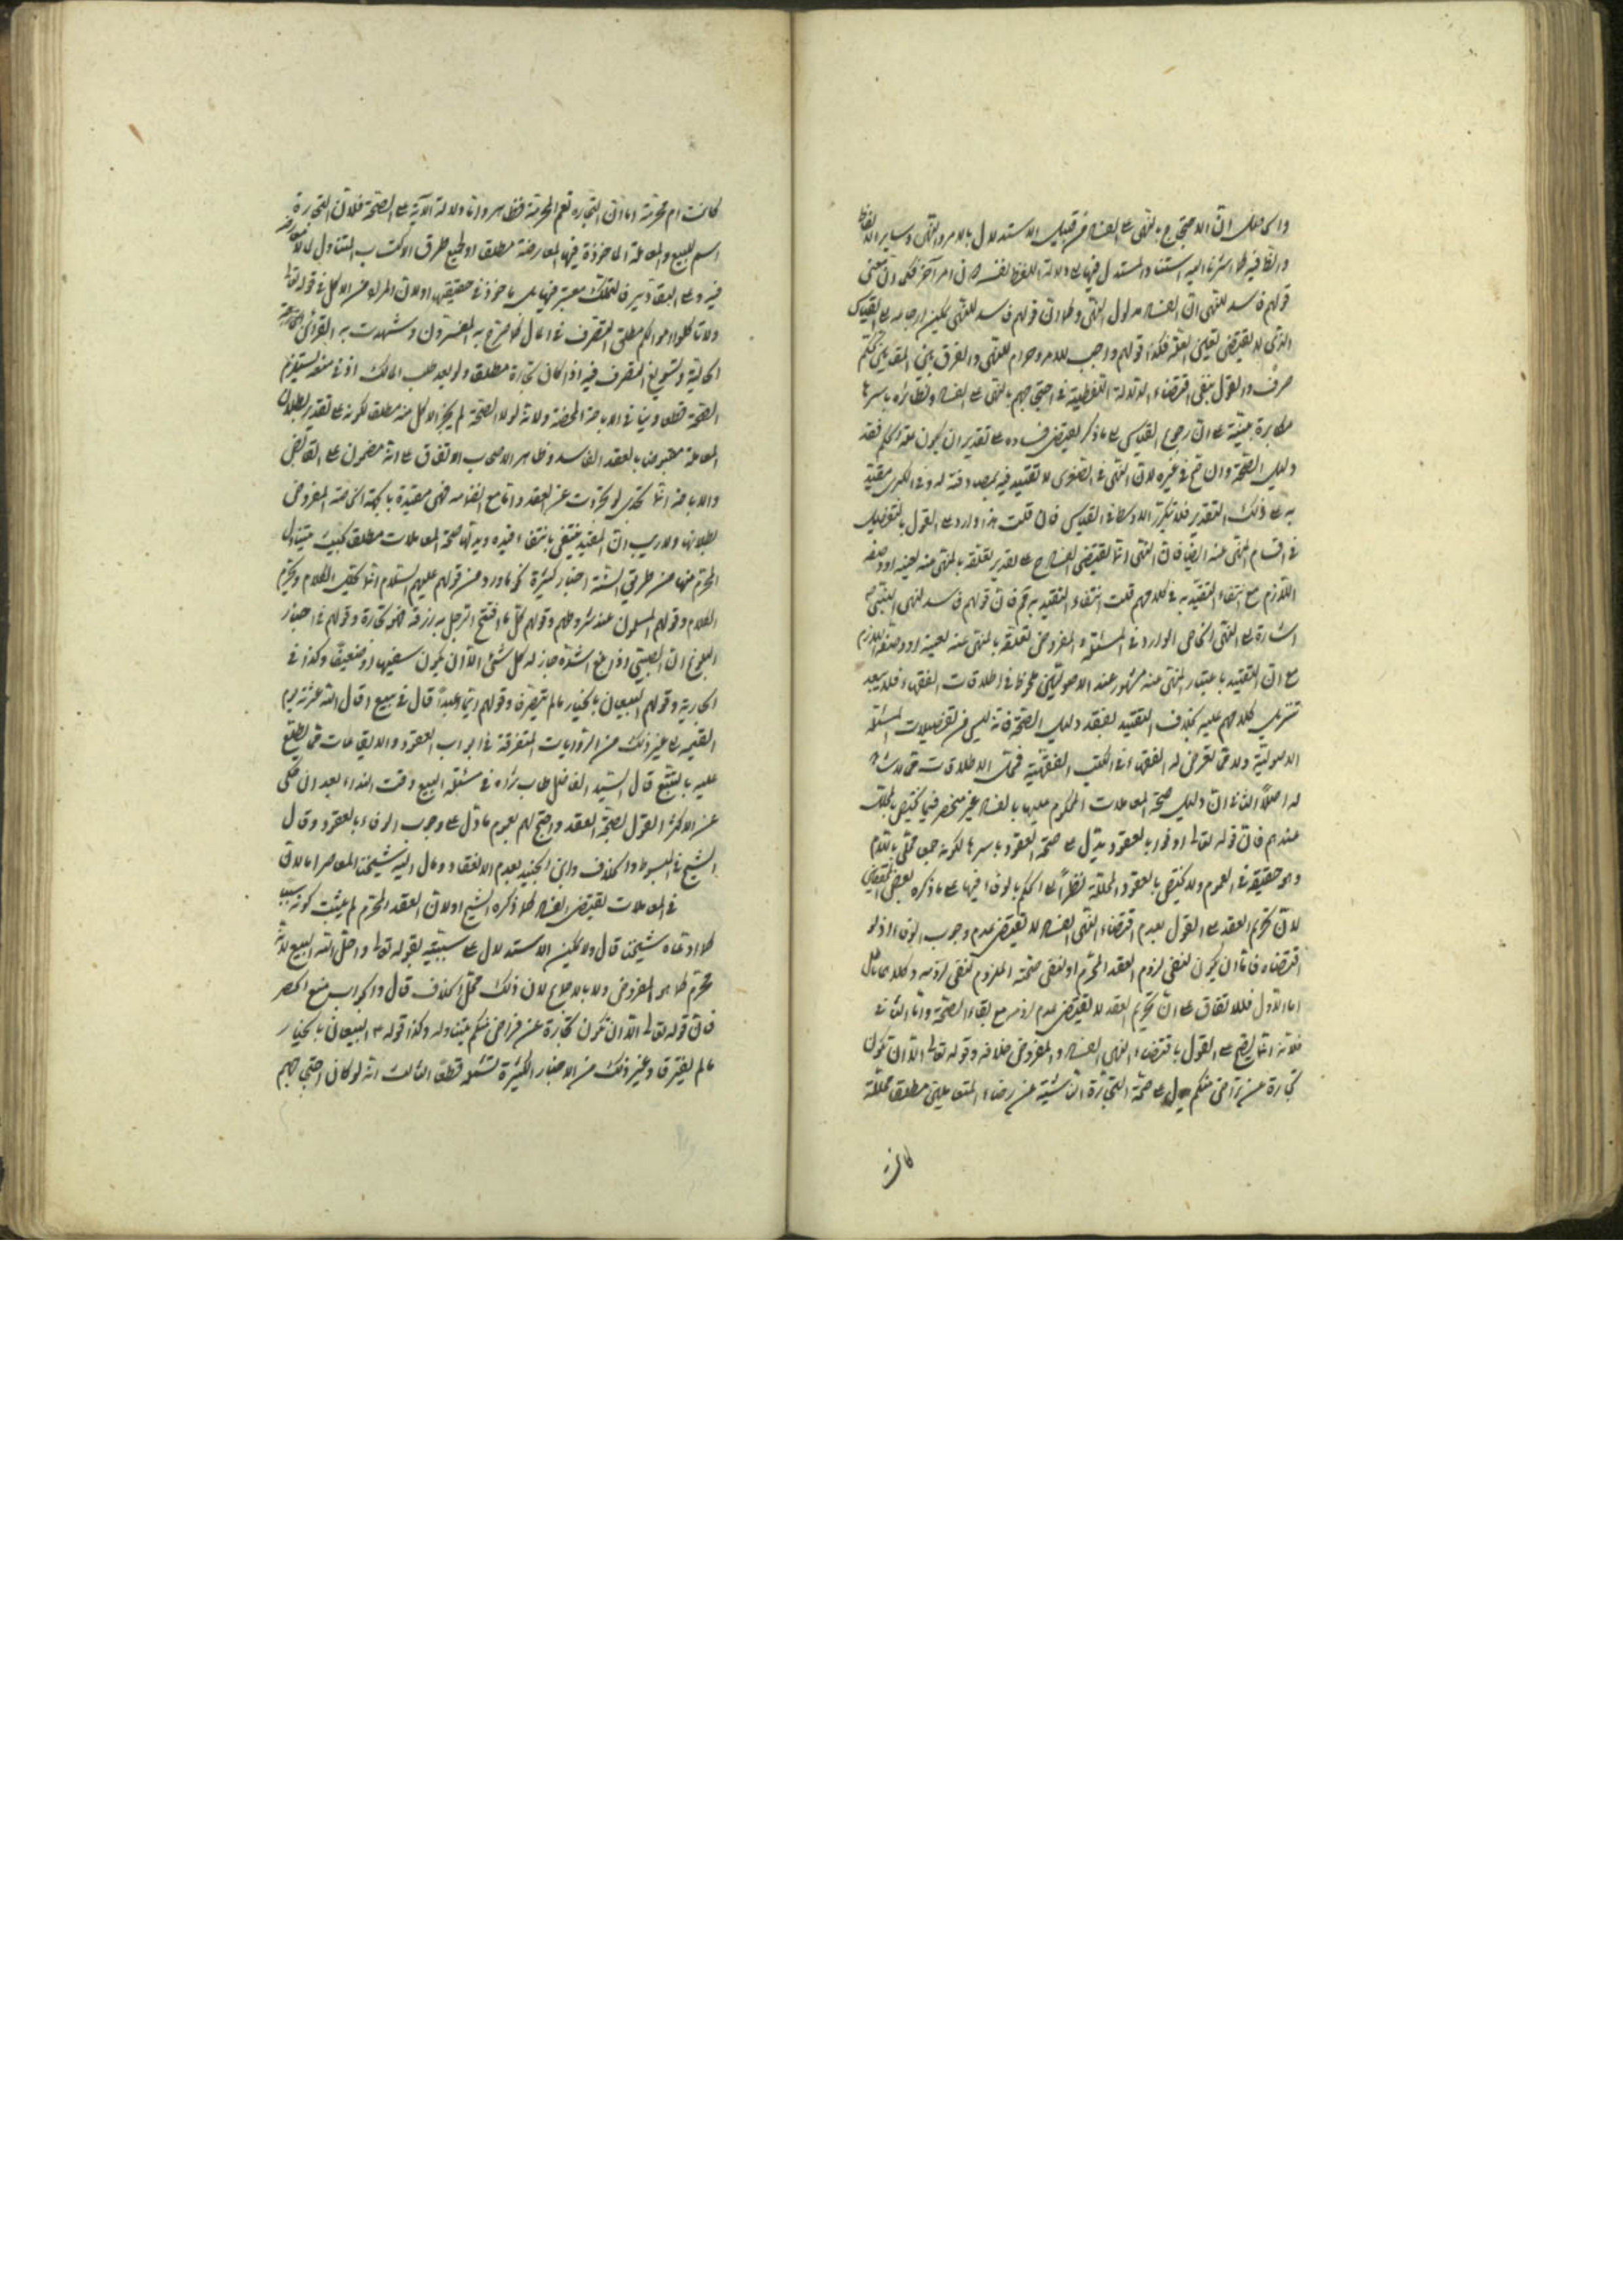 والحاصل ان الاحتجاج بالنهى على الفساد من قبيل الاستدلال بالامر والنهى وساير الالفاظ
والظاهر فيه كما اشرنا اليه استناد المستدل فيها الى دلالة اللفظ لنفسه لا الى امر آخر فكما ان معنى
قولهم فاسد للنهى ان الفساد مدلول النهى وكما ان قولهم فاسد للنهى يمكن ارجاعه الى القياس
الذى لا يقتضى تعليق الفقه فكذا قولهم واجب للامر وحرام للنهى والفرق بين المقامين تحكم
صرف والقول بنفى اقتضاء الدلالة اللفظية فى احتجاجهم بالنهى على الفساد ونظائره باسرها
مكابرة بينة على ان رجوع القياس الى ما ذكر يقتضى فساده على تقدير ان يكون علة الحكم فقد
دليل الصحة وان صح فى غيره لان النهى فى الصغرى لا تقييد فيه بمصادفته له وفى الكبرى مقيد
به على ذلك التقدير فلا يتكرر الاوسط فى القياس فان قلت هذا وارد على القول بالتفصيل
فى اقسام المنهى عنه ايضا فان النهى انما يقتضى الفساد ح على تقدير تعلقه بالمنهى عنه لعينه او وصفه
اللازم مع انتفاء التقييد به فى كلامهم قلت انتفاء التقييد به ثم فان قولهم فاسد للنهى المقتضى له
اشارة الى النهى الخاص الوارد فى المسئلة المفروض تعلقه بالمنهى عنه لعينه او وصفه اللازم
مع ان التقييد باعتبار المنهى عنه مشهور عند الاصوليين ملحوظ فى اطلاقات الفقهاء فلا يبعد
تنزيل كلامهم عليه بخلاف التقييد بفقد دليل الصحة فانه ليس من تفصيلات المسئلة
الاصولية ولا مما تعرض له الفقهاء فى الكتب الفقهية فحمل الاطلاقات مما لا شاهد
له اصلا الثانى ان دليل صحة المعاملات المحكوم عليها بالفساد غير منحصر فيما يختص بالمحلل
عندهم فان قوله تعالى اوفوا بالعقود يدل على صحة العقود باسرها لكونه جمعا محلى باللام
وهو حقيقة فى العموم ولا يختص بالعقود المحللة نظرا الى الحكم بالوفاء فيها على ما ذكره بعض المحققين
لان تحريم العقد على القول بعدم اقتضاء النهى الفساد لا يقتضى عدم وجوب الوفاء اذ لو
اقتضاه فاما ان يكون لنفى لزوم العقد المحرم او لنفى صحته الملزوم لنفى لزومه وكلاهما باطل
اما الاول فللاتفاق على ان تحريم العقد لا يقتضى عدم لزومه مع بقاء الصحة واما الثانى
فلانه انما يصح على القول باقتضاء النهى الفساد والمفروض خلافه وقوله تعالى الا ان تكون
تجارة عن تراض منكم يدل على صحة التجارة الناشئة عن رضاء المتعاملين مطلقا محللة
كانت
كانت ام محرمة اما ان التجارة تعم المحرمة فظاهر واما دلالة الآية على الصحة فلان التجارة
اسم للبيع والمعاملة الماخوذة فيها المعاوضة مطلقا او لجميع طرق الاكتساب المتناول لما لا معاوضة
فيه وعلى التقادير فالتملك معتبر فيها بل ماخوذ فى حقيقتها ولان المراد من الاكل فى قوله تعالى
ولا تاكلوا اموالكم مطلق التصرف فى المال كما صرح به المفسرون وشهدت به القرائن الخارجة
الحالية وتسويغ التصرف فيه اذا كان تجارة مطلقا ولو بعد طلب المالك اذنى منعه يستلزم
الصحة قطعا وينافى الاباحة المحضة ولانه لولا الصحة لم يجز الاكل منه مطلقا لكونه على تقدير بطلان
المعاملة مقبوضا بالعقد الفاسد وظاهر الاصحاب الاتفاق على انه مضمون على القابض
والاباحة انما تجدى لو تجردت عن العقد واما مع انضمامه فهى مقيدة بالجهة الخاصة المفروض
بطلانها ولا ريب ان المقيد ينتفى بانتفاء قيده ويدل على صحة المعاملات مطلقا بحيث يتناول
المحرم منها من طريق السنة اخبار كثيرة نحو ما ورد من قولهم عليهم السلام انما يحلل الكلام ويحرم
الكلام وقولهم المسلمون عند شروطهم وقولهم كل ما افتتح الرجل به رزقه فهو تجارة وقولهم فى اخبار
البلوغ ان الصبى اذا بلغ اشده جاز له كل شئ الا ان يكون سفيها او ضعيفا وكذا فى
الجارية وقولهم البيعان بالخيار ما لم يفترقا وقولهم ايما عبد اقال فى بيع اقال الله عثرته يوم
القيمة الى غير ذلك من الروايات المتفرقة فى ابواب العقود والايقاعات مما يطلع
عليه بالتتبع قال السيد الفاضل طاب ثراه فى مسئلة البيع وقت النداء بعد ان حكى
عن الاكثر القول بصحة العقد واحتج لهم بعموم ما دل على وجوب الوفاء بالعقود وقال
الشيخ فى المبسوط والخلاف وابن الجنيد بعدم الانعقاد ومال اليه شيخنا المعاصر اما لان
فى المعاملات يقتضى الفساد كما ذكره الشيخ او لان العقد المحرم لم يثبت كونه سببا
كما ادعاه شيخنا قال ولا يمكن الاستدلال على سببيته بقوله تعالى واحل الله البيع لانه
محرم كما هو المفروض ولا بالاجماع لان ذلك محل الخلاف قال والجواب منع الحصر
فان قوله تعالى الا ان تكون تجارة عن تراض منكم يتناوله وكذا قوله ع البيعان بالخيار
ما لم يفترقا وغير ذلك من الاخبار الكثيرة تشمله قطعا الثالث انه لو كان احتجاجهم